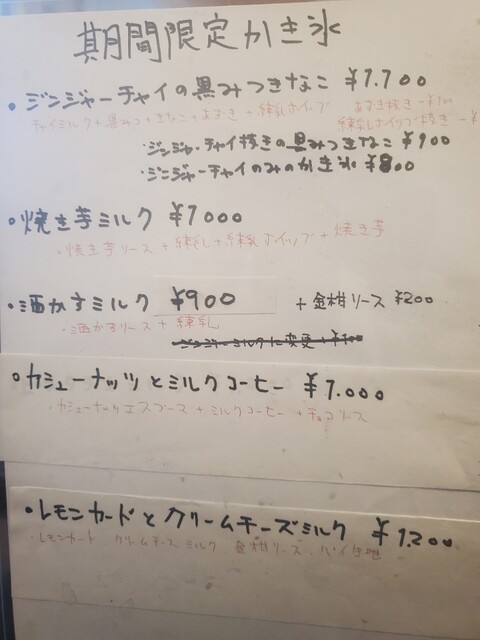 期間限定かき氷
・ジンジャーチャイの黒みつきなこ ¥1.100
チャイミルク+黒みつ+きなこ+あずき+練乳ホイップ あずき抜き-¥100
練乳ホイップ抜き-¥
・ジンジャ・チャイ抜きの黒みつきなこ ¥900
・ジンジャーチャイのみのかき氷 ¥800
・焼き芋ミルク ¥1000
・焼き芋ソース+練乳+練乳ホイップ+焼き芋
・酒かすミルク ¥900 +金柑ソース ¥200
・酒かすソース+練乳
ジンジャーミルクに変更+¥100
・カシューナッツとミルクコーヒー ¥1.000
・カシューナッツ+ミルクコーヒー+チョコソース
・レモンカードとクリームチーズミルク ¥1.200
・レモンカード クリームチーズミルク 金柑ソース パイ生地